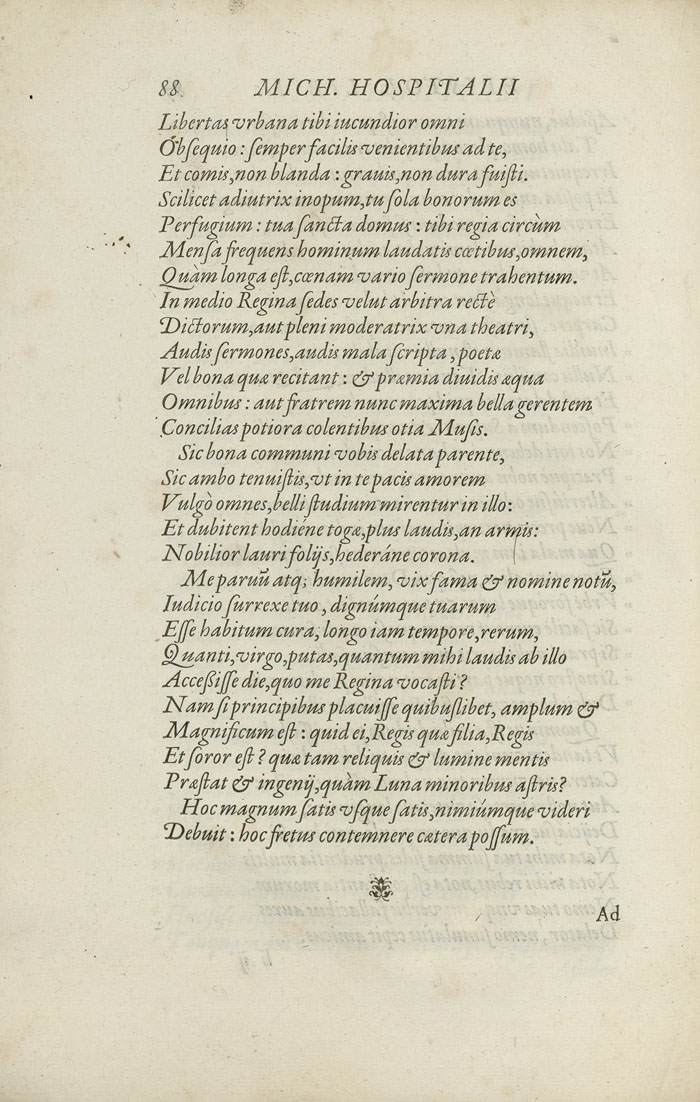 88 MICH. HOSPITALII
Libertas vrbana tibi iucundior omni
Obſequio : ſemper facilis venientibus ad te,
Et comis, non blanda : grauis, non dura fuiſti.
Scilicet adiutrix inopum, tu ſola bonorum es
Perfugium : tua ſancta domus : tibi regia circùm
Menſa frequens hominum laudatis cœtibus, omnem,
Quàm longa eſt, cœnam vario ſermone trahentum.
In medio Regina ſedes velut arbitra rectè
Dictorum, aut pleni moderatrix vna theatri,
Audis ſermones, audis mala ſcripta, poetæ
Vel bona quæ recitant : & præmia diuidis æqua
Omnibus : aut fratrem nunc maxima bella gerentem
Concilias potiora colentibus otia Muſis.
Sic bona communi vobis delata parente,
Sic ambo tenuiſtis, vt in te pacis amorem
Vulgò omnes, belli ſtudium mirentur in illo:
Et dubitent hodiéne togæ, plus laudis, an armis:
Nobilior lauri folijs, hederáne corona.
Me paruū atq; humilem, vix fama & nomine notū,
Iudicio ſurrexe tuo, dignúmque tuarum
Eſſe habitum cura, longo iam tempore, rerum,
Quanti, virgo, putas, quantum mihi laudis ab illo
Acceßiſſe die, quo me Regina vocaſti?
Nam ſi principibus placuiſſe quibuſlibet, amplum &
Magnificum eſt : quid ei, Regis quæ filia, Regis
Et ſoror eſt? quæ tam reliquis & lumine mentis
Præſtat & ingenij, quàm Luna minoribus aſtris?
Hoc magnum ſatis vſque ſatis, nimiúmque videri
Debuit : hoc fretus contemnere cætera poſſum.
Ad